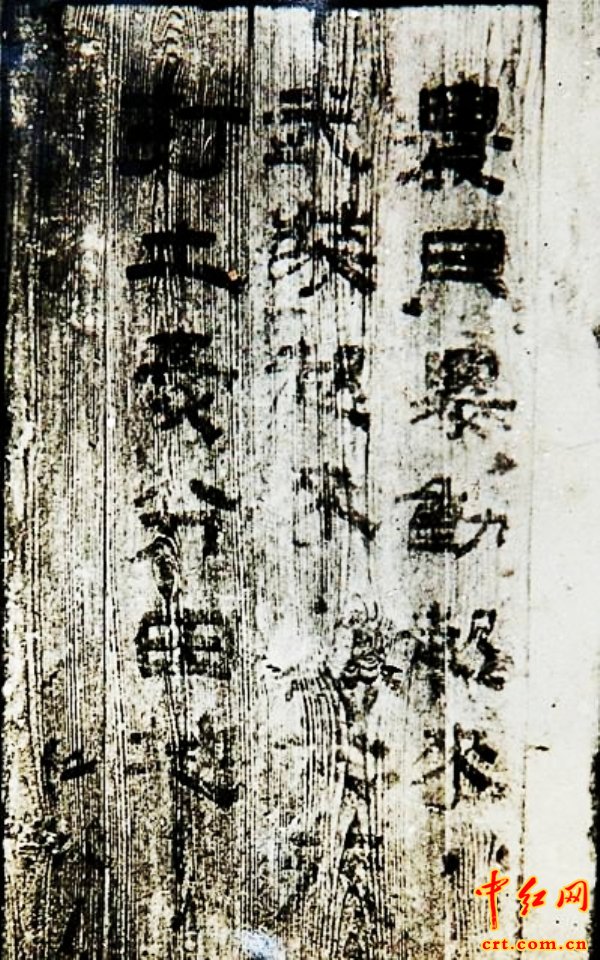 農民暴動起來
武裝
打土豪分田地
中红网
crt.com.cn